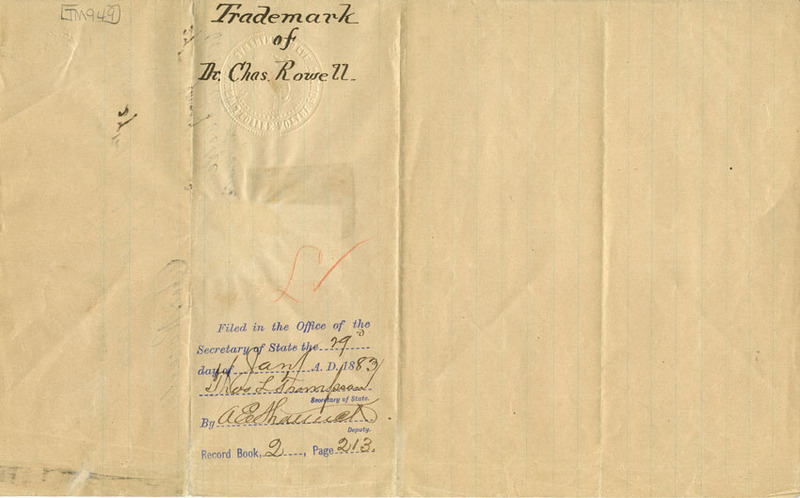 TM949
Trademark
of
Dr. Chas. Rowell.
Filed in the Office of the
Secretary of State the 29
day of Jany A. D. 1883
Thos L Thompson
Secretary of State.
By A E
Deputy.
Record Book, 2, Page 213.